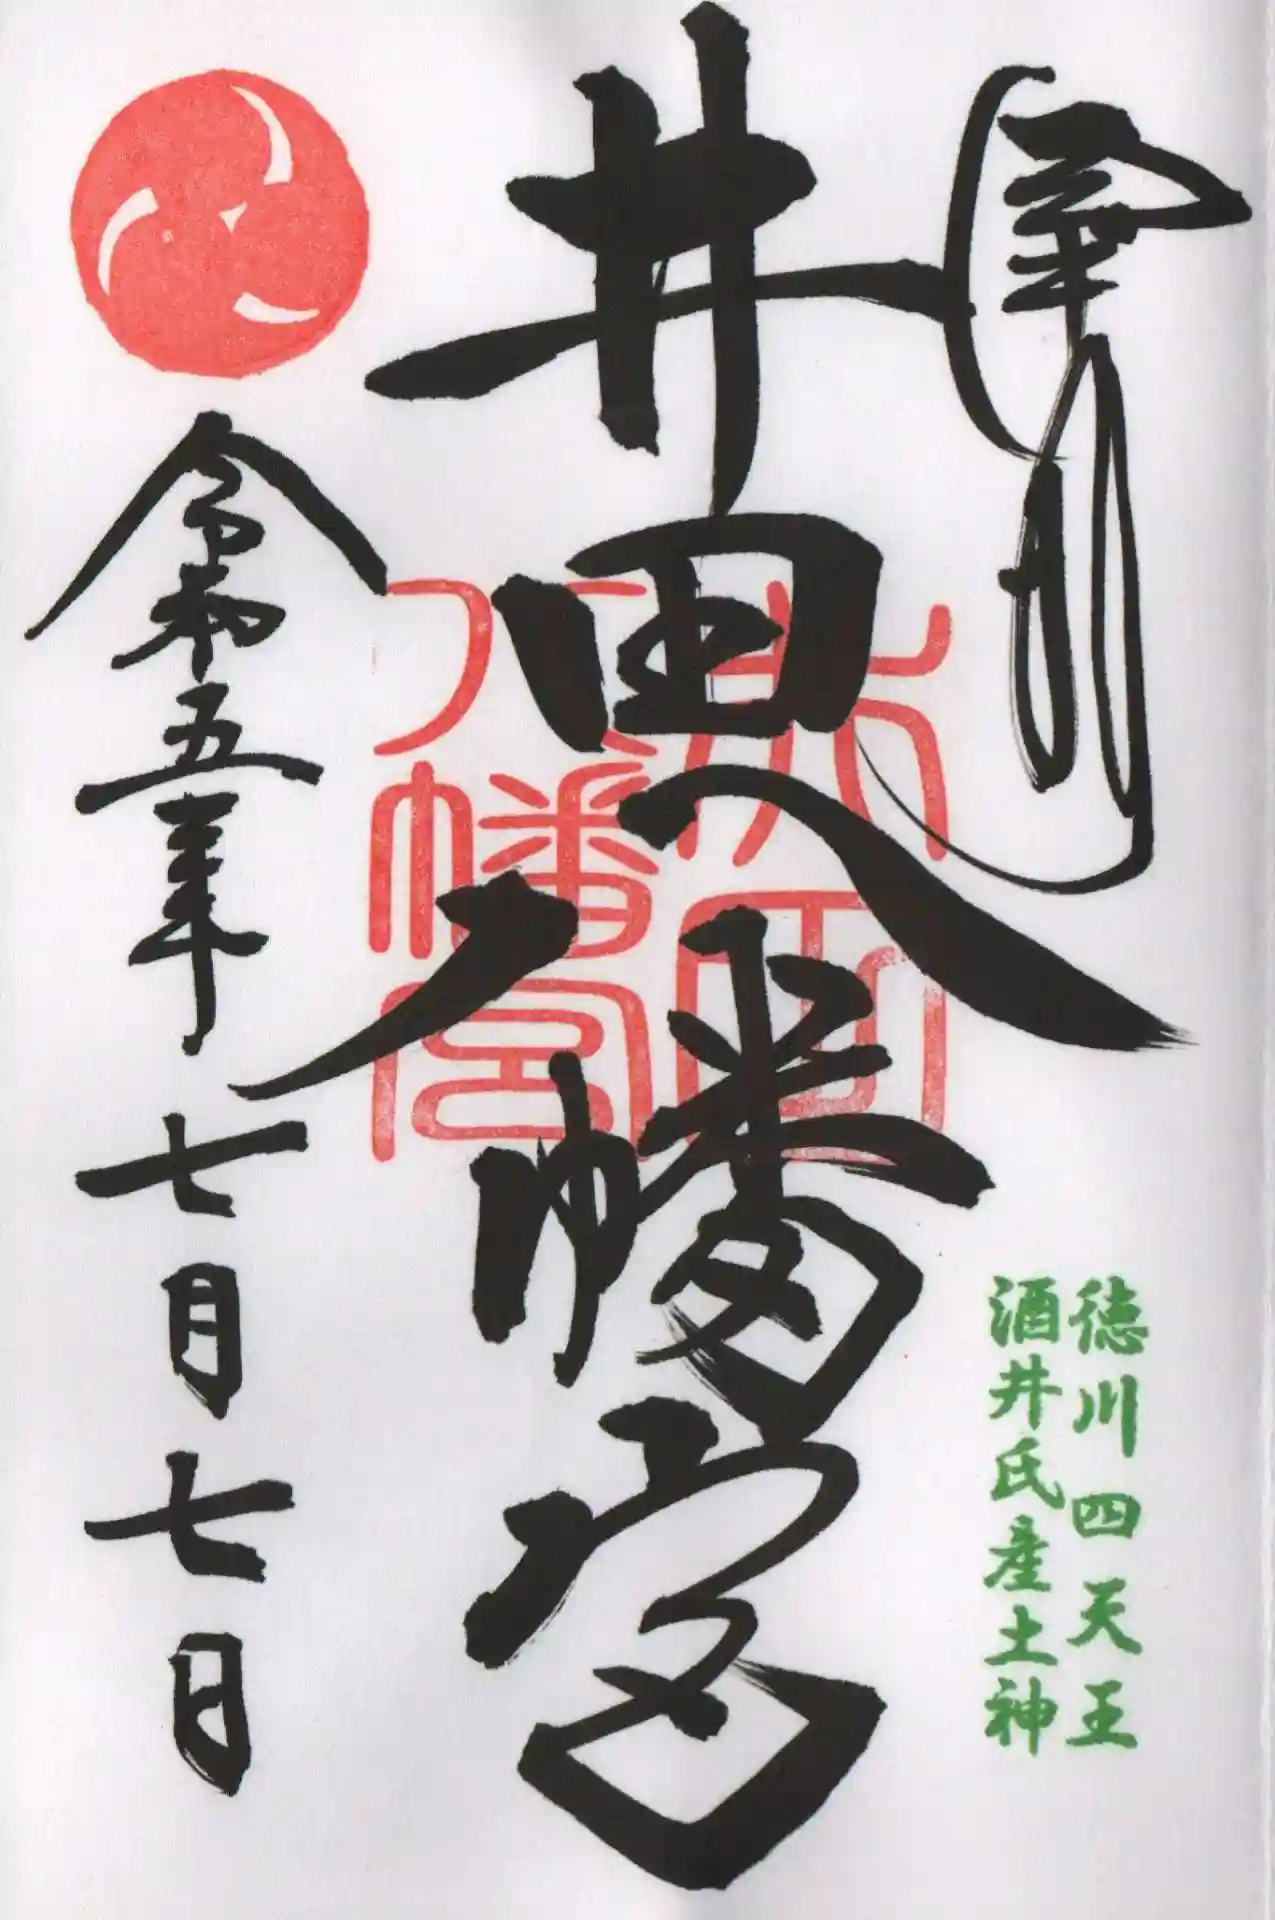 奉拝
徳川四天王
酒井氏産土神
井田八幡宮
井田
八幡宮
令和五年七月七日